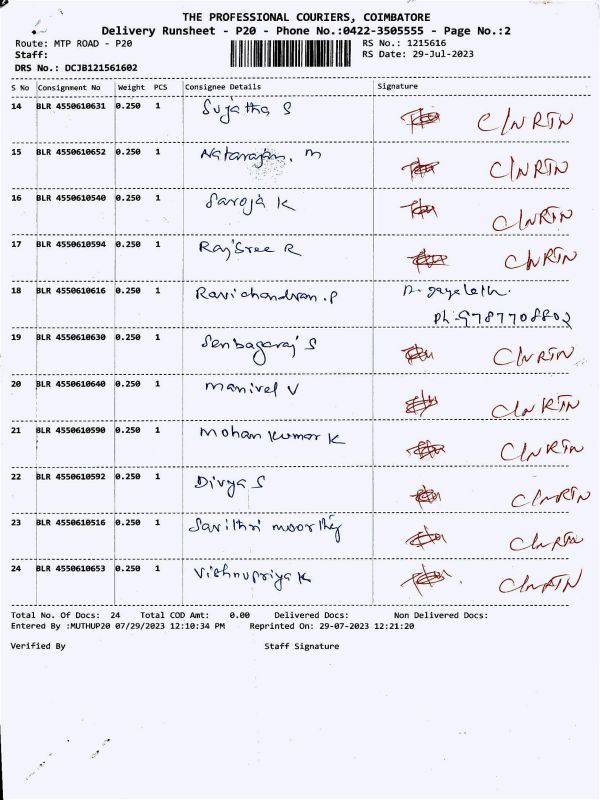 THE PROFESSIONAL COURIERS, COIMBATORE
Delivery Runsheet - P20 - Phone No.:0422-3505555 - Page No.:2
Route: MTP ROAD - P20 RS No.: 1215616
Staff: RS Date: 29-Jul-2023
DRS No.: DCJB121561602
S No Consignment No Weight PCS Consignee Details Signature
14 BLR 4550610631 0.250 1 Sujatha S C/N RTN
15 BLR 4550610652 0.250 1 Natarajan. M C/N RTN
16 BLR 4550610540 0.250 1 Saroja K C/N RTN
17 BLR 4550610594 0.250 1 Raj'Sree R C/N RTN
18 BLR 4550610616 0.250 1 Ravichandran.P
Ph:9787708802
19 BLR 4550610630 0.250 1 Senbagaraj S C/N RTN
20 BLR 4550610640 0.250 1 Manivel V C/N RTN
21 BLR 4550610590 0.250 1 Mohan Kumar K C/N RTN
22 BLR 4550610592 0.250 1 Divya S C/N RTN
23 BLR 4550610516 0.250 1 Savithri moorthy C/N RTN
24 BLR 4550610653 0.250 1 Vishnupriya K C/N RTN
Total No. Of Docs: 24 Total COD Amt: 0.00 Delivered Docs: Non Delivered Docs:
Entered By :MUTHUP20 07/29/2023 12:10:34 PM Reprinted On: 29-07-2023 12:21:20
Verified By Staff Signature